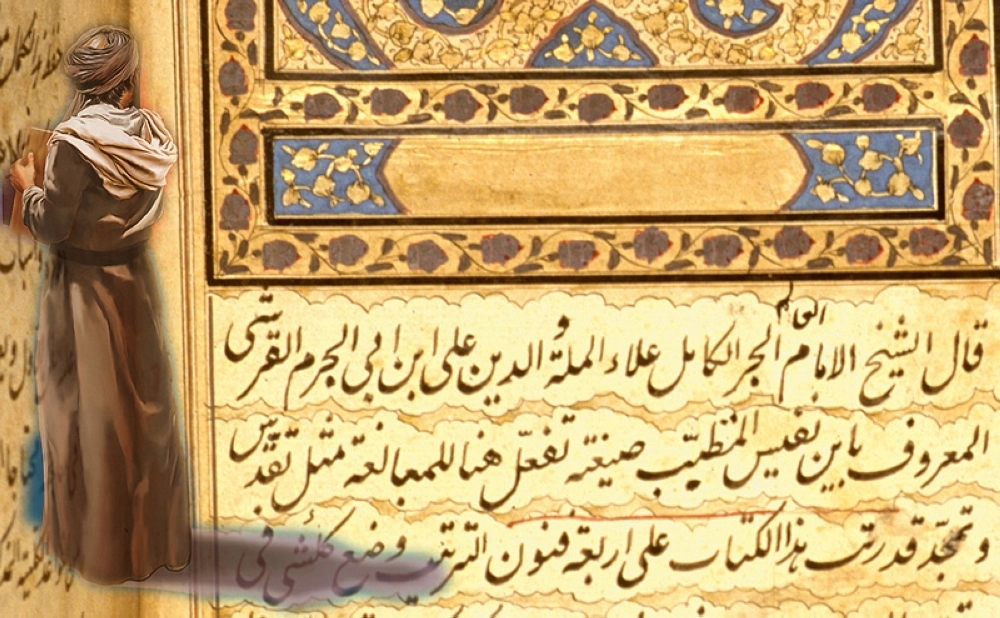 العالم
قال الشيخ الامام الحبر الكامل علاء الملة و الدين على ابن ابى الحرم القرشى
المعروف بابن نفيس المتطيّب صيغة تفعّل هنا للمبالغة مثل تقدّس
و تمجّد قد رتبت هذا الكتاب على اربعة فنون الترتيب وضع كلشئ فى